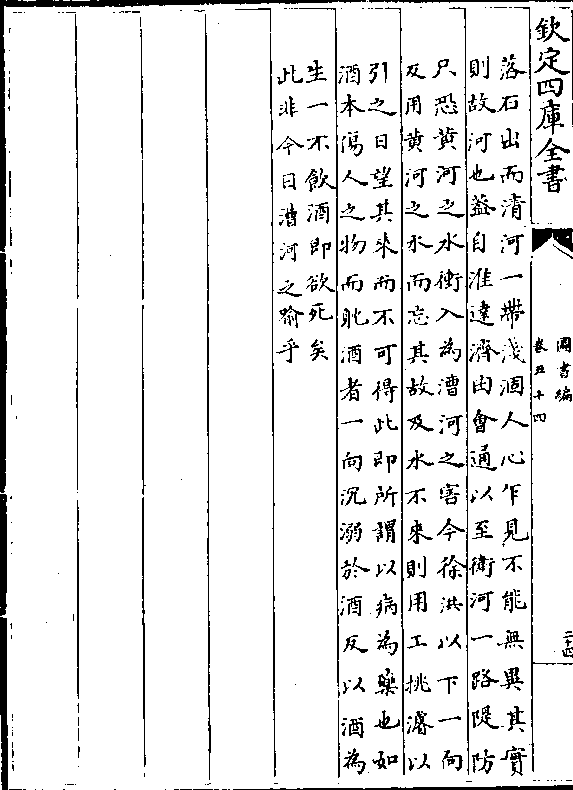 欽定四庫全書
圖書編
卷五十四
二十四
落石出而清河一帶淺涸人心乍見不能無異其實
則故河也葢自淮達濟由會通以至衛河一路隄防
只恐黄河之水衝入為漕河之害今徐洪以下一向
反用黄河之水而忘其故及水不來則用工挑濬以
引之日望其來而不可得此即所謂以病為藥也如
酒本傷人之物而躭酒者一向沉溺於酒反以酒為
生一不飲酒即欲死矣
此非今日漕河之喻乎